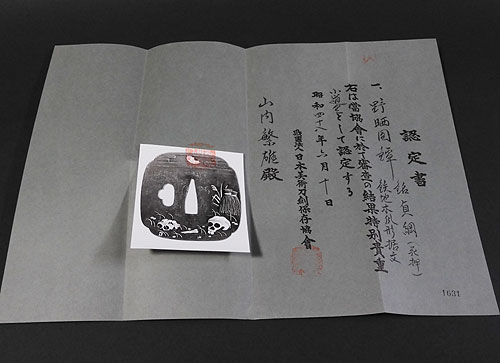 認定書
一、野晒図鐔 銘 貞綱(花押)
鉄地木瓜形据文
右は當協會に於て審査の結果特別貴重
小道具として認定する
昭和四十八年六月十日
財團法人日本美術刀劍保存協會
山内繁雄殿
1631